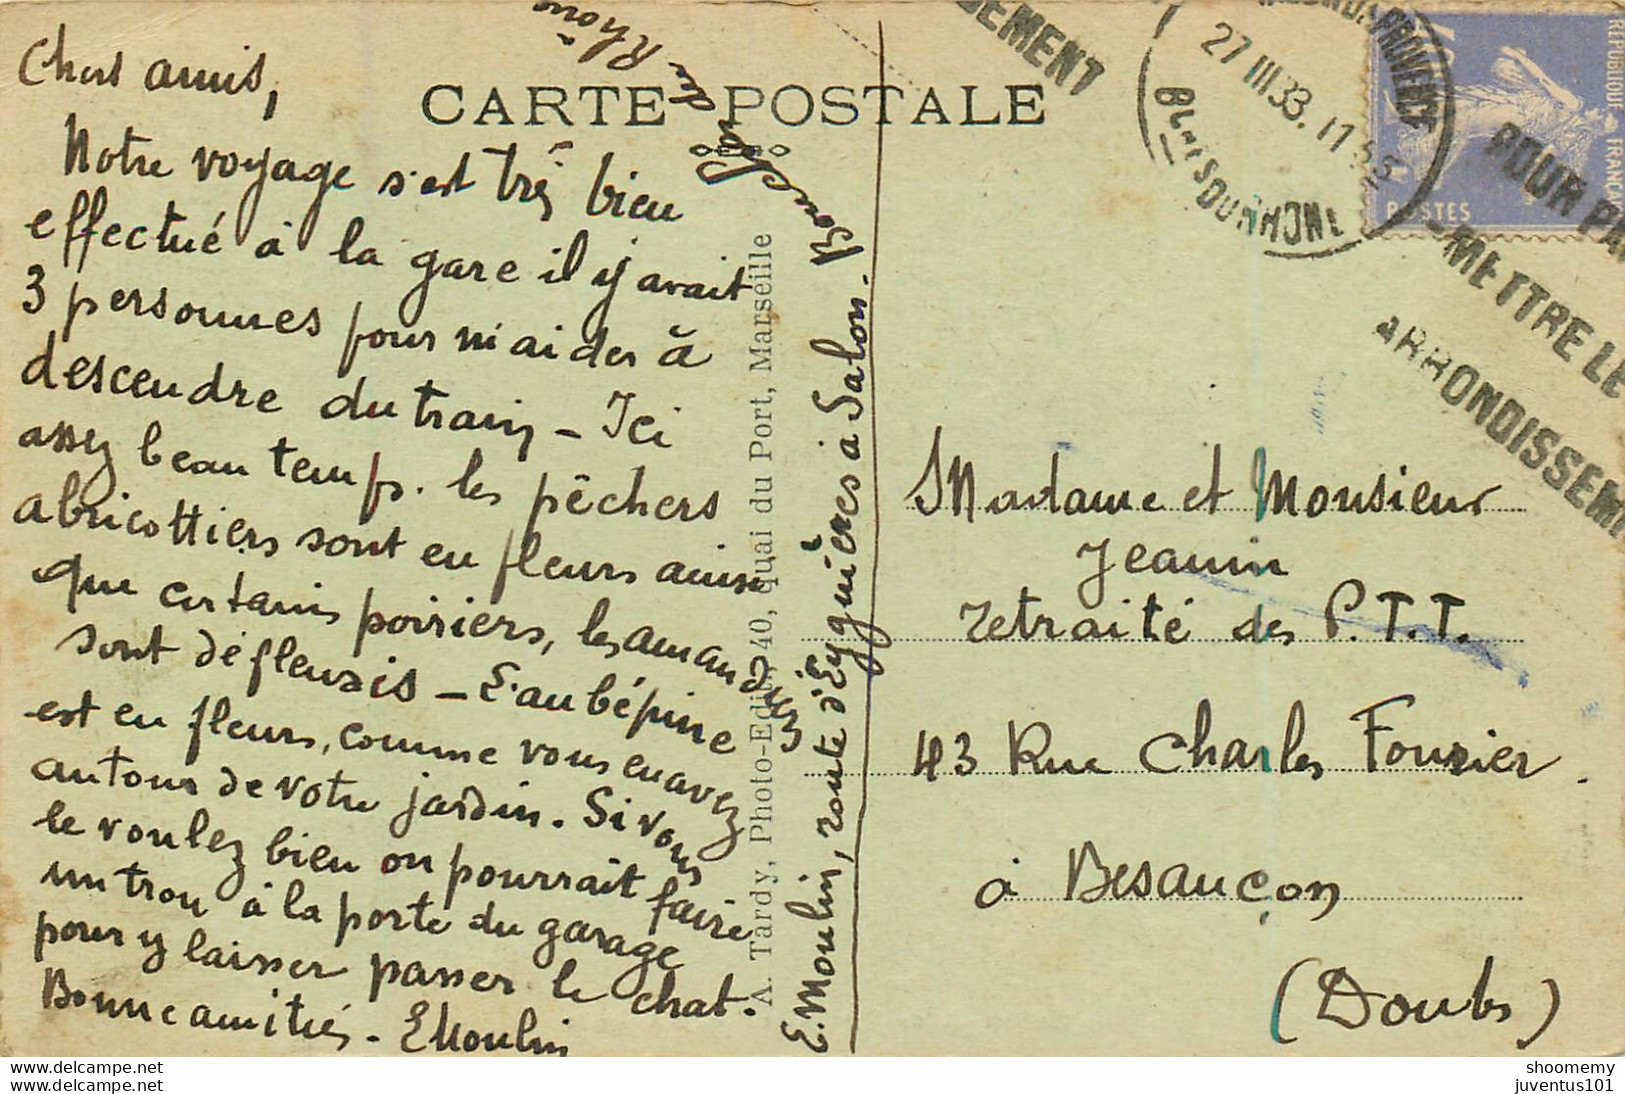 CARTE POSTALE
Chers amis,
Notre voyage s'est très bien
effectué à la gare il y avait
3 personnes pour m'aider à
descendre du train - Ici
assez beau temps. les pêchers
abricottiers sont en fleurs ainsi
que certains poiriers, les amandiers
sont défleuris - L'aubépine
est en fleurs, comme vous en avez
autour de votre jardin. Si vous
le voulez bien on pourrait faire
un trou à la porte du garage
pour y laisser passer le chat.
Bonne amitiés - EMoulin
E. Moulin, route d'Eyguières à Salon. Bouches du Rhône
A. Tardy, Photo-Edit., 40, quai du Port, Marseille
GEMENT
PROVENCE
27 III 33. 17
BCHES DU RHONE
REPUBLIQUE FRANÇAISE
POSTES
POUR PA
-METTRE LE
ARRONDISSEM
Madame et Monsieur
Jeanin
retraité des P.T.T.
43 Rue Charles Fourier.
à Besançon
(Doubs)
shoomemy
juventus101